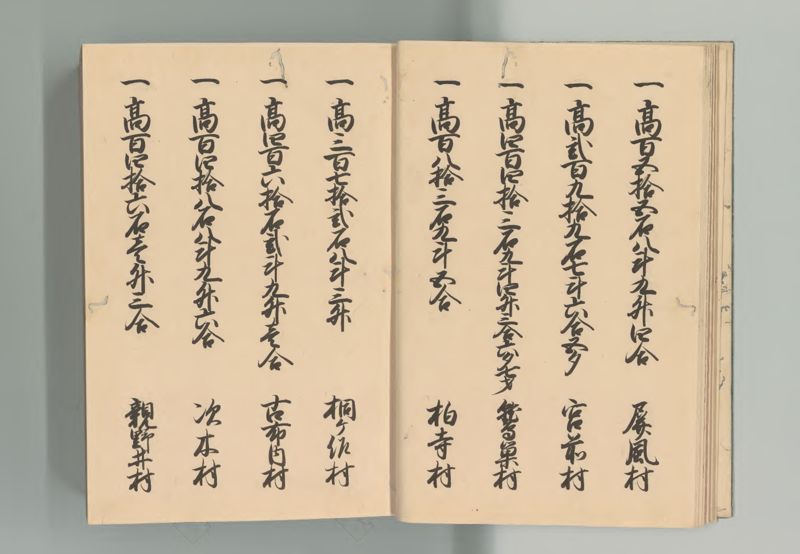 一 高百五拾五石八斗九升四合 屏風村
一 高弐百九拾九石七斗六合五夕 宮前村
一 高四百四拾三石九斗四升三合六夕壱才 鷲巣村
一 高百八拾三石九斗五合 柏寺村
一 高三百七拾弐石八斗三升 桐ケ作村
一 高四百六拾石弐斗九升壱合 古布内村
一 高百四拾八石八斗九升六合 次木村
一 高百四拾六石壱升三合 親野井村